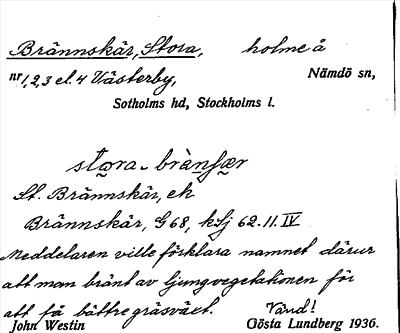 Brännskär, Stora, holme å
nr 1,2,3 el. 4 Västerby, Nämdö sn,
Sotholms hd, Stockholms l.
stora - brànsʃær
St. Brännskär, ek
Brännskär, G 68, kSj 62.11.IV
Meddelaren ville förklara namnet därur
att man bränt av ljungvegetationen för
att få bättre gräsväxt. Vänd!
John Westin Gösta Lundberg 1936.